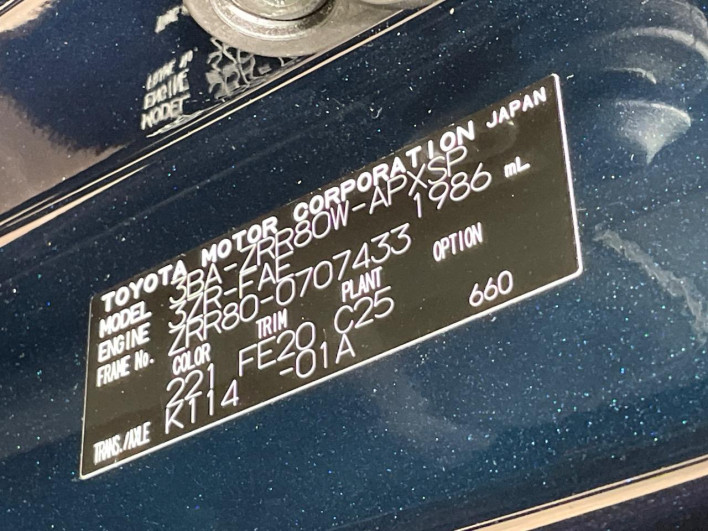 TOYOTA MOTOR CORPORATION JAPAN
MODEL 3BA-ZRR80W-APXSP
ENGINE 3ZR-FAE 1986 mL
FRAME No. ZRR80-0707433
COLOR TRIM PLANT OPTION
221 FE20 C25 660
TRANS./AXLE K114 -01A
ENGINE
MODEL